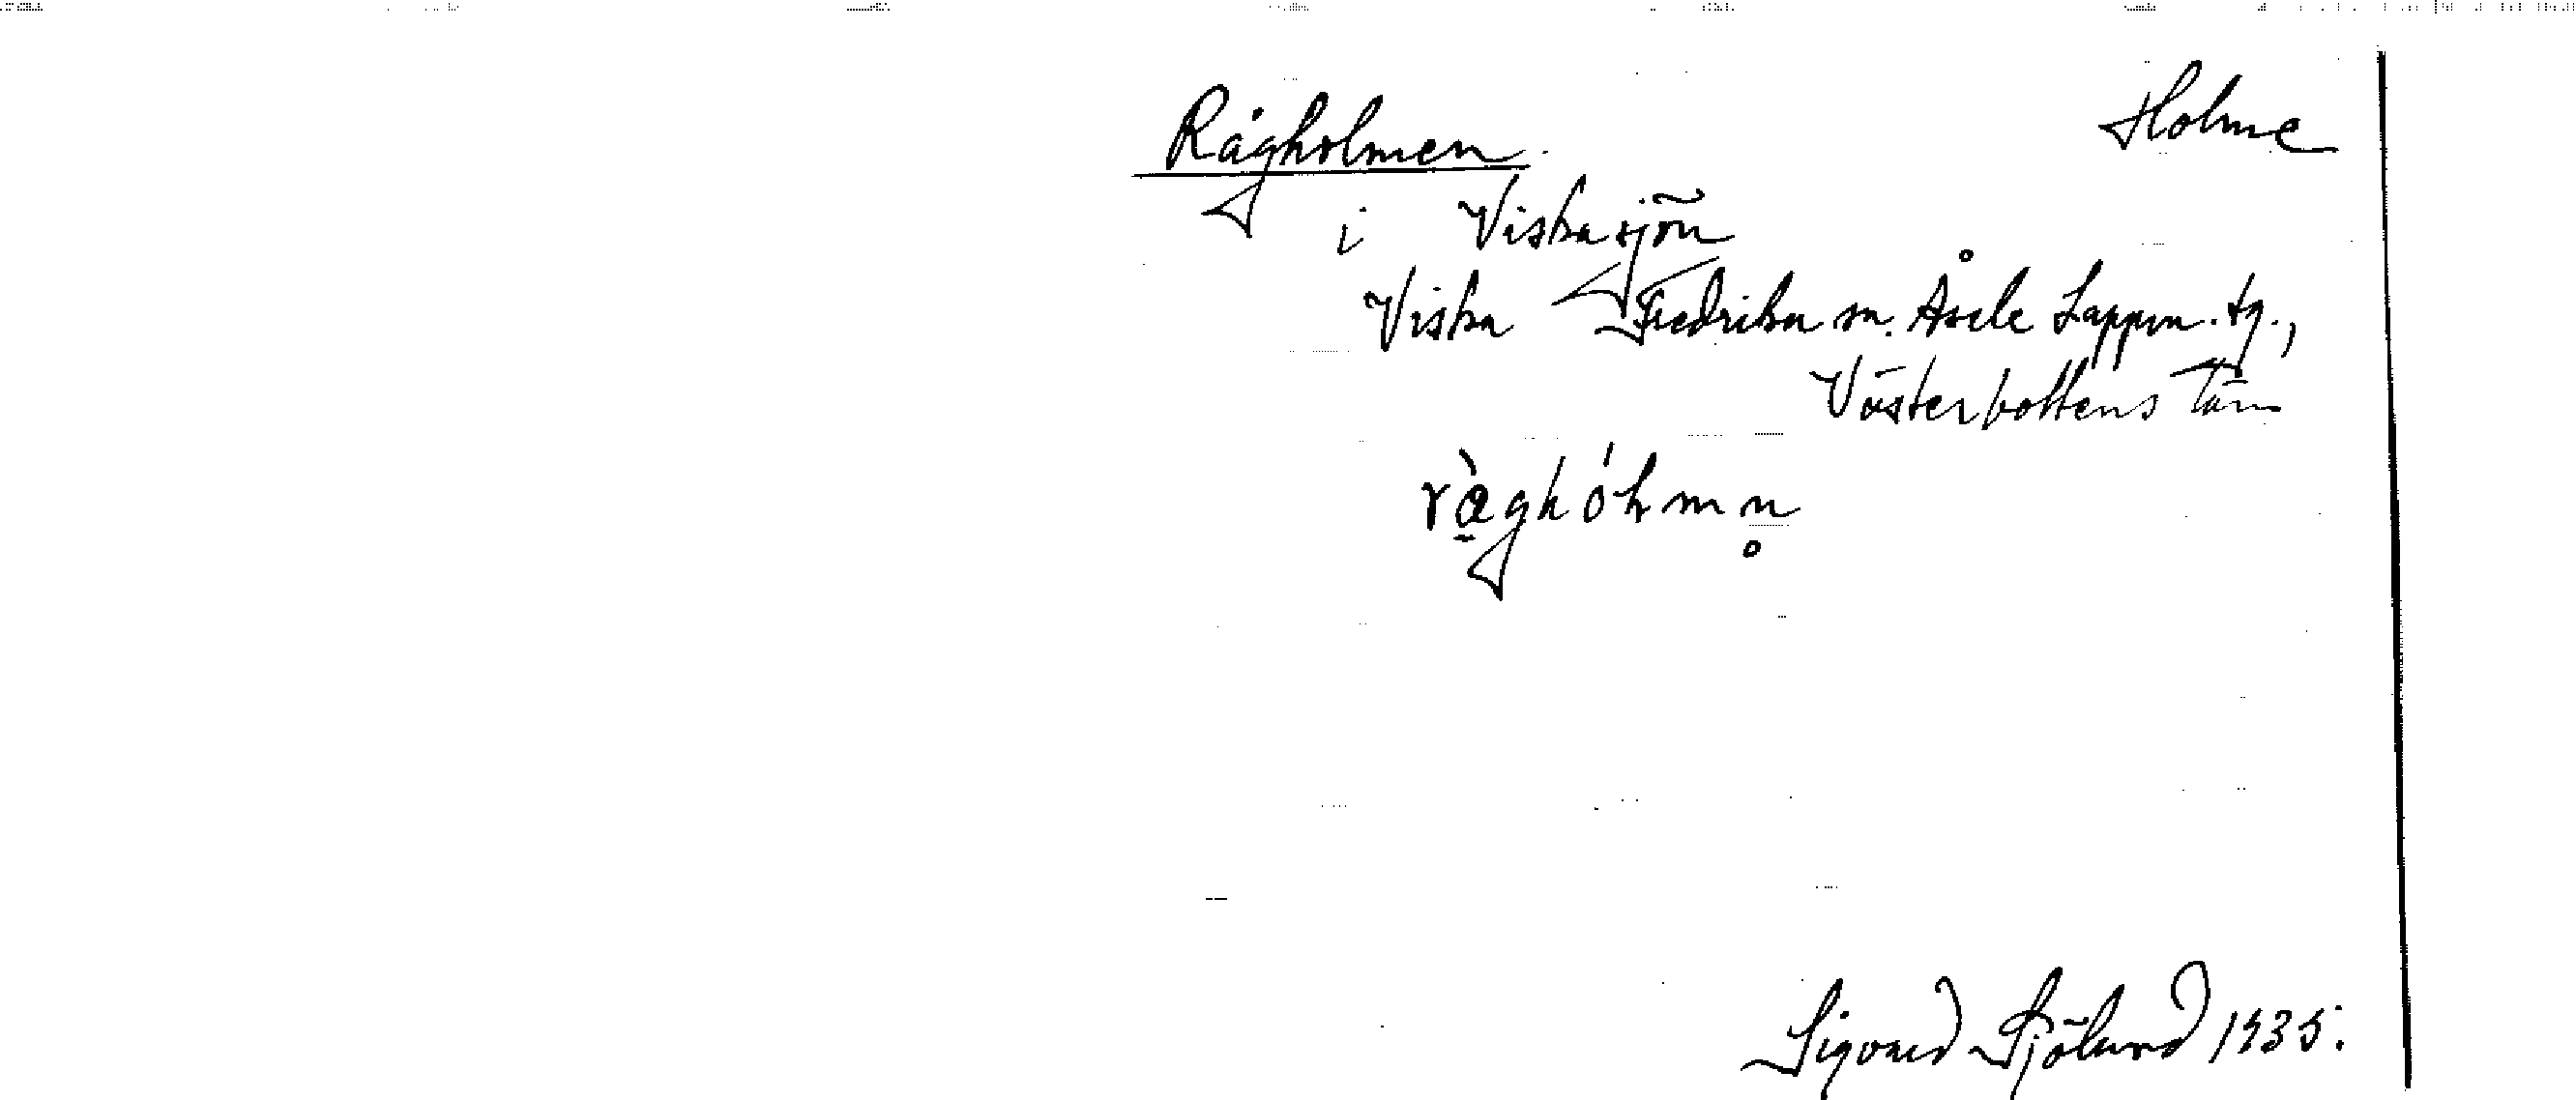 Rågholmen. Holme
i Viskasjön
Viska Fredrika sn. Åsele Lappm. tg.,
Västerbottens län
ràghóhmn̥
Sigvard Sjölund 1935.